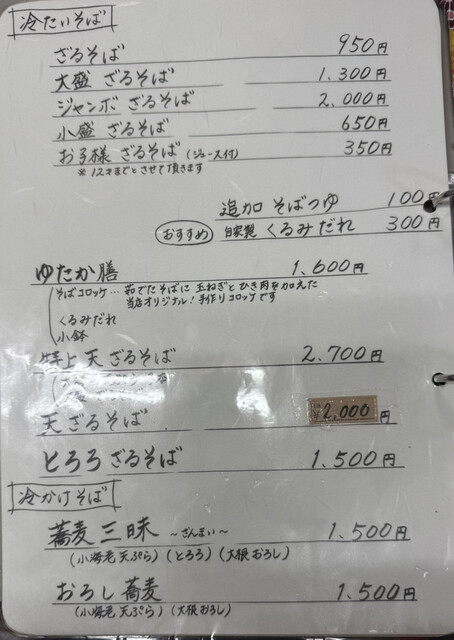 冷たいそば
ざるそば 950円
大盛 ざるそば 1.300円
ジャンボ ざるそば 2.000円
小盛 ざるそば 650円
お子様 ざるそば (ジュース付) 350円
※12才までとさせて頂きます
追加 そばつゆ 100円
おすすめ 自家製 くるみだれ 300円
ゆたか膳 1.600円
そばコロッケ… 茹でたそばに 玉ねぎと ひき肉を加えた
当店オリジナル!手作りコロッケです
くるみだれ
小鉢
特上 天 ざるそば 2.700円
天 ざるそば 2,000円
とろろ ざるそば 1.500円
冷かけそば
蕎麦 三昧 〜ざんまい〜 1.500円
(小海老 天ぷら) (とろろ) (大根おろし)
おろし 蕎麦 1.500円
(小海老 天ぷら) (大根おろし)